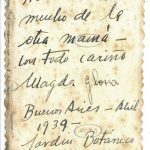 mucho de la
otra mama -
con todo cariño
Magda
Buenos Aires - Abril
1939 -
Jardin Botanico